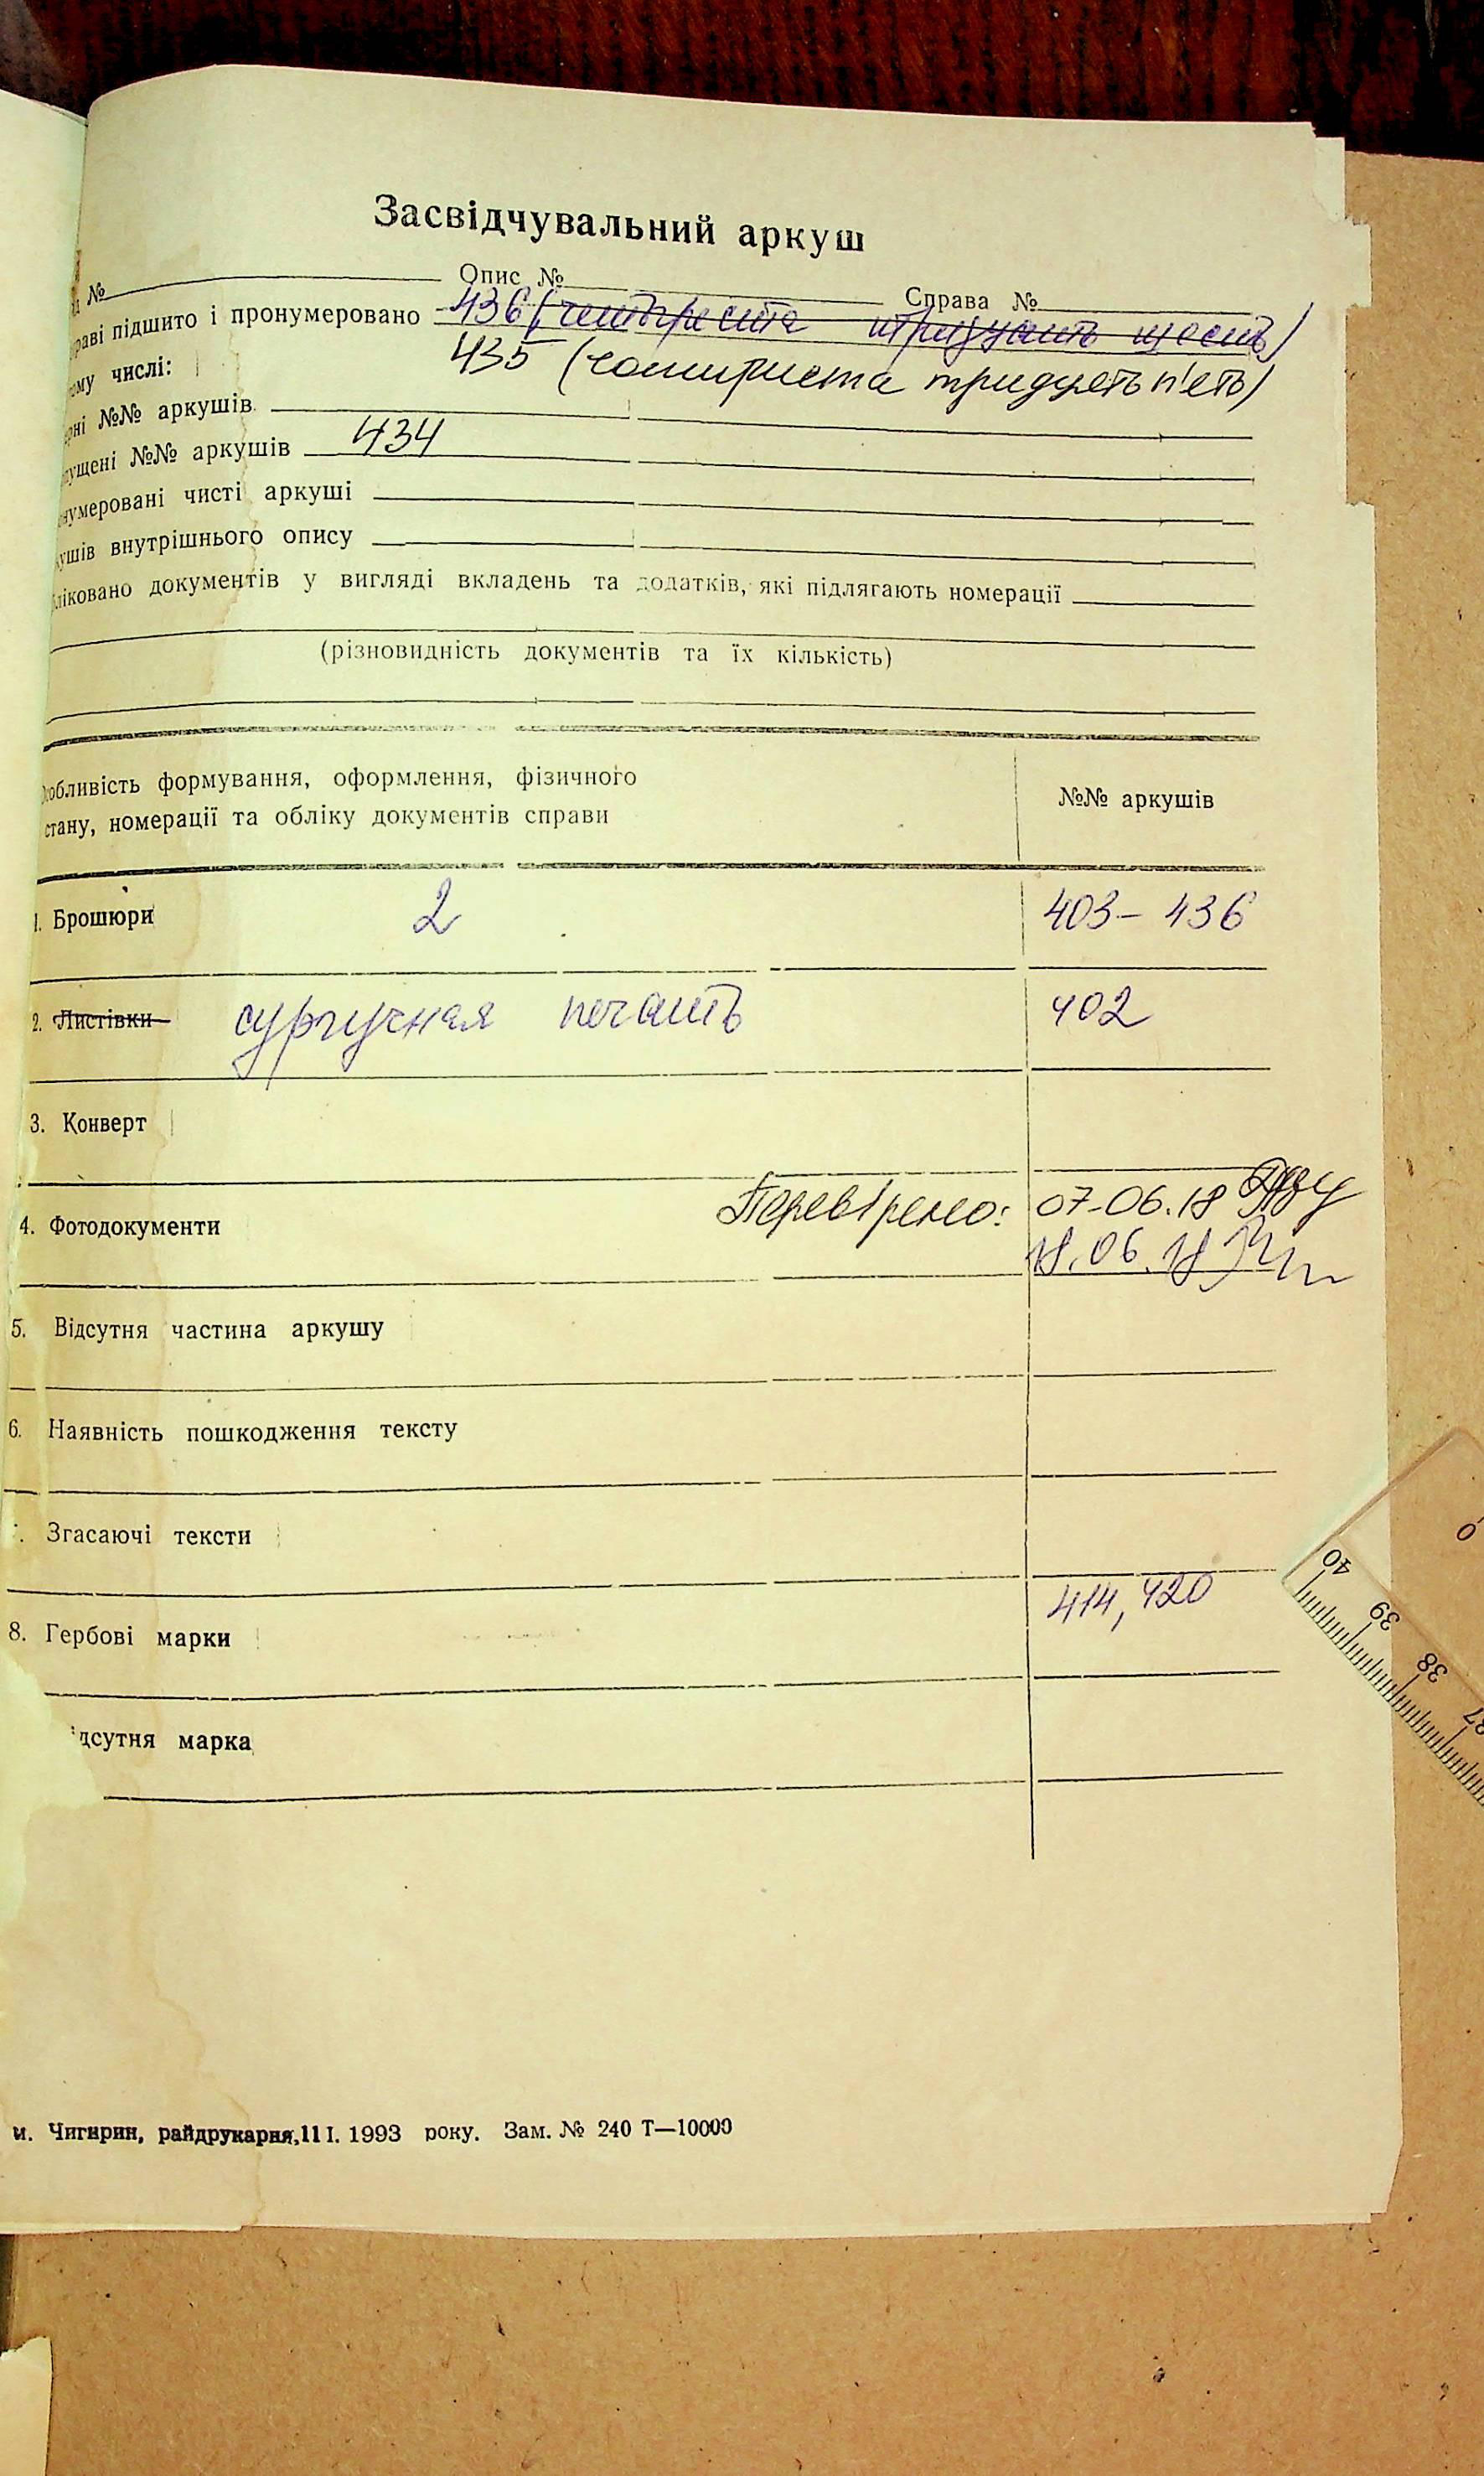 Засвідчувальний аркуш
№ Опис № Справа №
раві підшито і пронумеровано 436 (четыреста тридцать шесть)
ому числі: 435 (чотириста тридцять п'ять)
рні №№ аркушів
ущені №№ аркушів 434
нумеровані чисті аркуші
ушів внутрішнього опису
ліковано документів у вигляді вкладень та додатків, які підлягають номерації
(різновидність документів та їх кількість)
собливість формування, оформлення, фізичного
стану, номерації та обліку документів справи
№№ аркушів
1. Брошюри 2 403 – 436
2. Листівки сургучная печать 402
3. Конверт
Перевірено: 07.06.18
4. Фотодокументи
18.06.18
5. Відсутня частина аркушу
6. Наявність пошкодження тексту
. Згасаючі тексти
8. Гербові марки 414, 420
дсутня марка
м. Чигирин, райдрукарня, 11 I. 1993 року. Зам. № 240 Т—10000
0
40
39
38
37